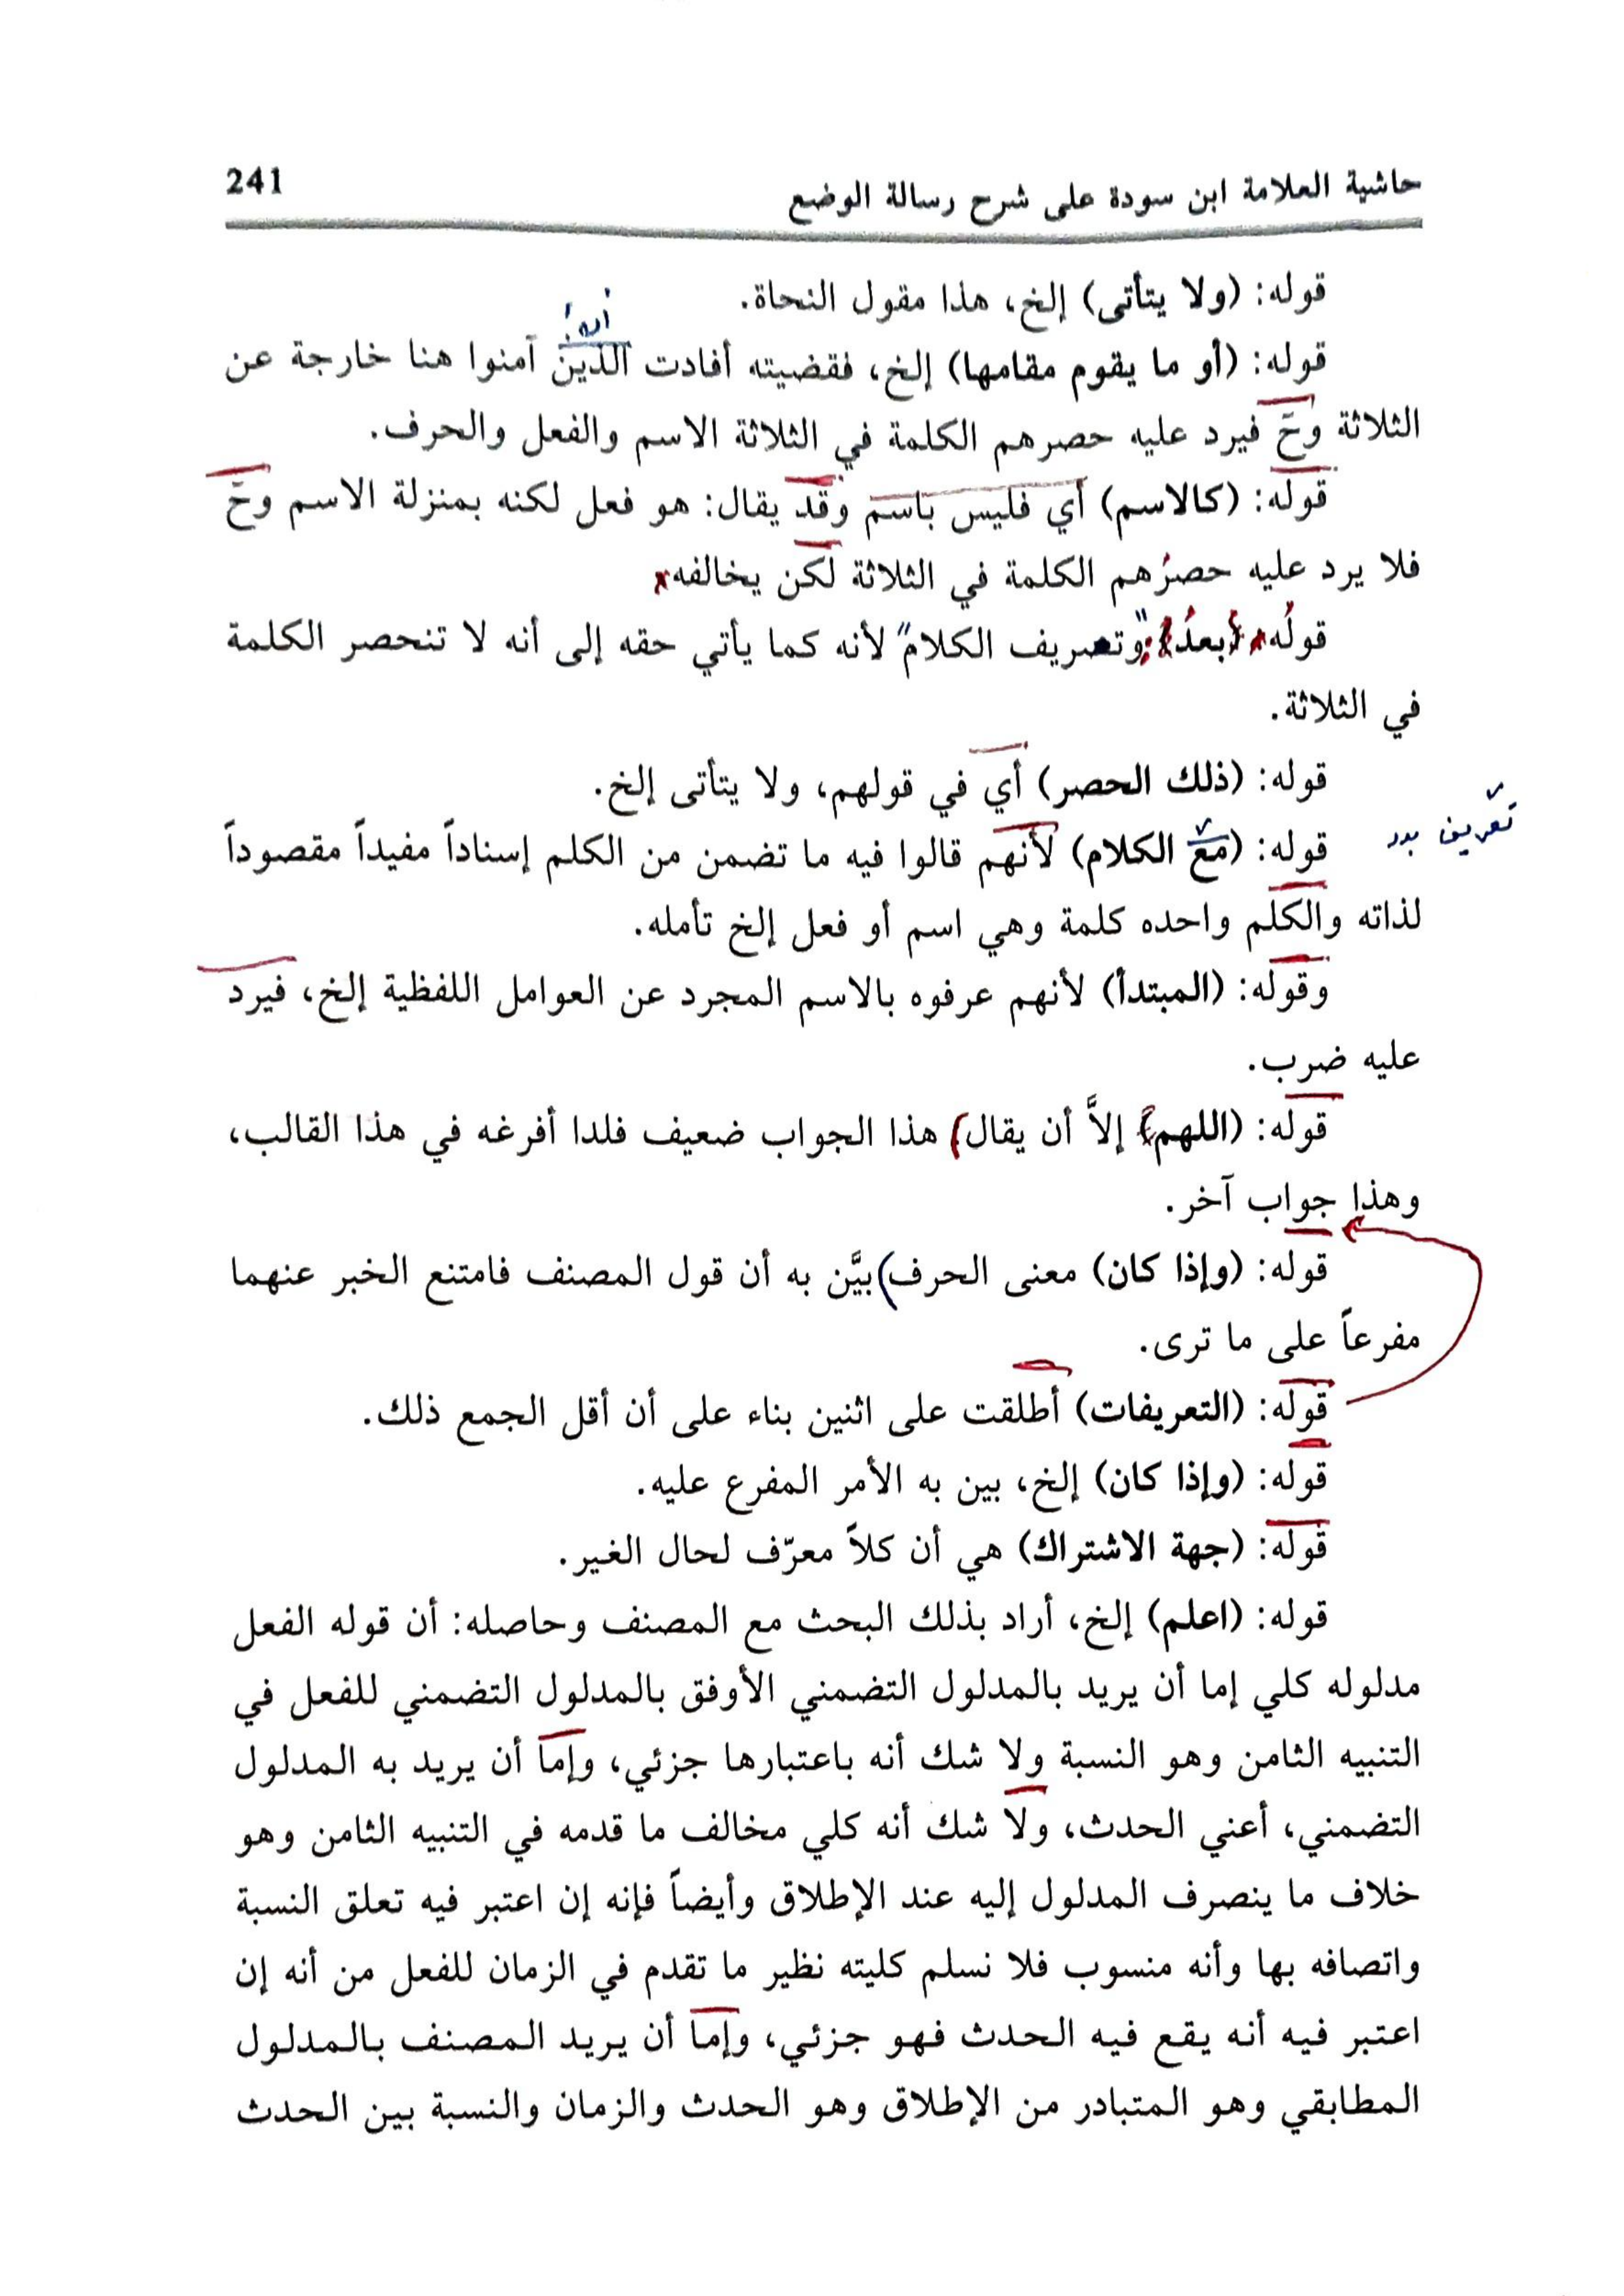 حاشية العلامة ابن سودة على شرح رسالة الوضع 241
قوله: (ولا يتأتى) إلخ، هذا مقول النحاة.
قوله: (أو ما يقوم مقامها) إلخ، فقضيته أفادت الذين آمنوا هنا خارجة عن
الثلاثة وحَ فيرد عليه حصرهم الكلمة في الثلاثة الاسم والفعل والحرف.
قوله: (كالاسم) أي فليس باسم وقد يقال: هو فعل لكنه بمنزلة الاسم وحَ
فلا يرد عليه حصرُهم الكلمة في الثلاثة لكن يخالفه
قولُه (بعدُ): "وتصريف الكلام" لأنه كما يأتي حقه إلى أنه لا تنحصر الكلمة
في الثلاثة.
قوله: (ذلك الحصر) أي في قولهم، ولا يتأتى إلخ.
تعريف بدد
قوله: (مع الكلام) لأنهم قالوا فيه ما تضمن من الكلم إسناداً مفيداً مقصوداً
لذاته والكلم واحده كلمة وهي اسم أو فعل إلخ تأمله.
وقوله: (المبتدأ) لأنهم عرفوه بالاسم المجرد عن العوامل اللفظية إلخ، فيرد
عليه ضرب.
قوله: (اللهم) إلاَّ أن يقال) هذا الجواب ضعيف فلدا أفرغه في هذا القالب،
وهذا جواب آخر.
قوله: (وإذا كان) معنى الحرف) بيَّن به أن قول المصنف فامتنع الخبر عنهما
مفرعاً على ما ترى.
قوله: (التعريفات) أطلقت على اثنين بناء على أن أقل الجمع ذلك.
قوله: (وإذا كان) إلخ، بين به الأمر المفرع عليه.
قوله: (جهة الاشتراك) هي أن كلاً معرّف لحال الغير.
قوله: (اعلم) إلخ، أراد بذلك البحث مع المصنف وحاصله: أن قوله الفعل
مدلوله كلي إما أن يريد بالمدلول التضمني الأوفق بالمدلول التضمني للفعل في
التنبيه الثامن وهو النسبة ولا شك أنه باعتبارها جزئي، وإما أن يريد به المدلول
التضمني، أعني الحدث، ولا شك أنه كلي مخالف ما قدمه في التنبيه الثامن وهو
خلاف ما ينصرف المدلول إليه عند الإطلاق وأيضاً فإنه إن اعتبر فيه تعلق النسبة
واتصافه بها وأنه منسوب فلا نسلم كليته نظير ما تقدم في الزمان للفعل من أنه إن
اعتبر فيه أنه يقع فيه الحدث فهو جزئي، وإما أن يريد المصنف بالمدلول
المطابقي وهو المتبادر من الإطلاق وهو الحدث والزمان والنسبة بين الحدث